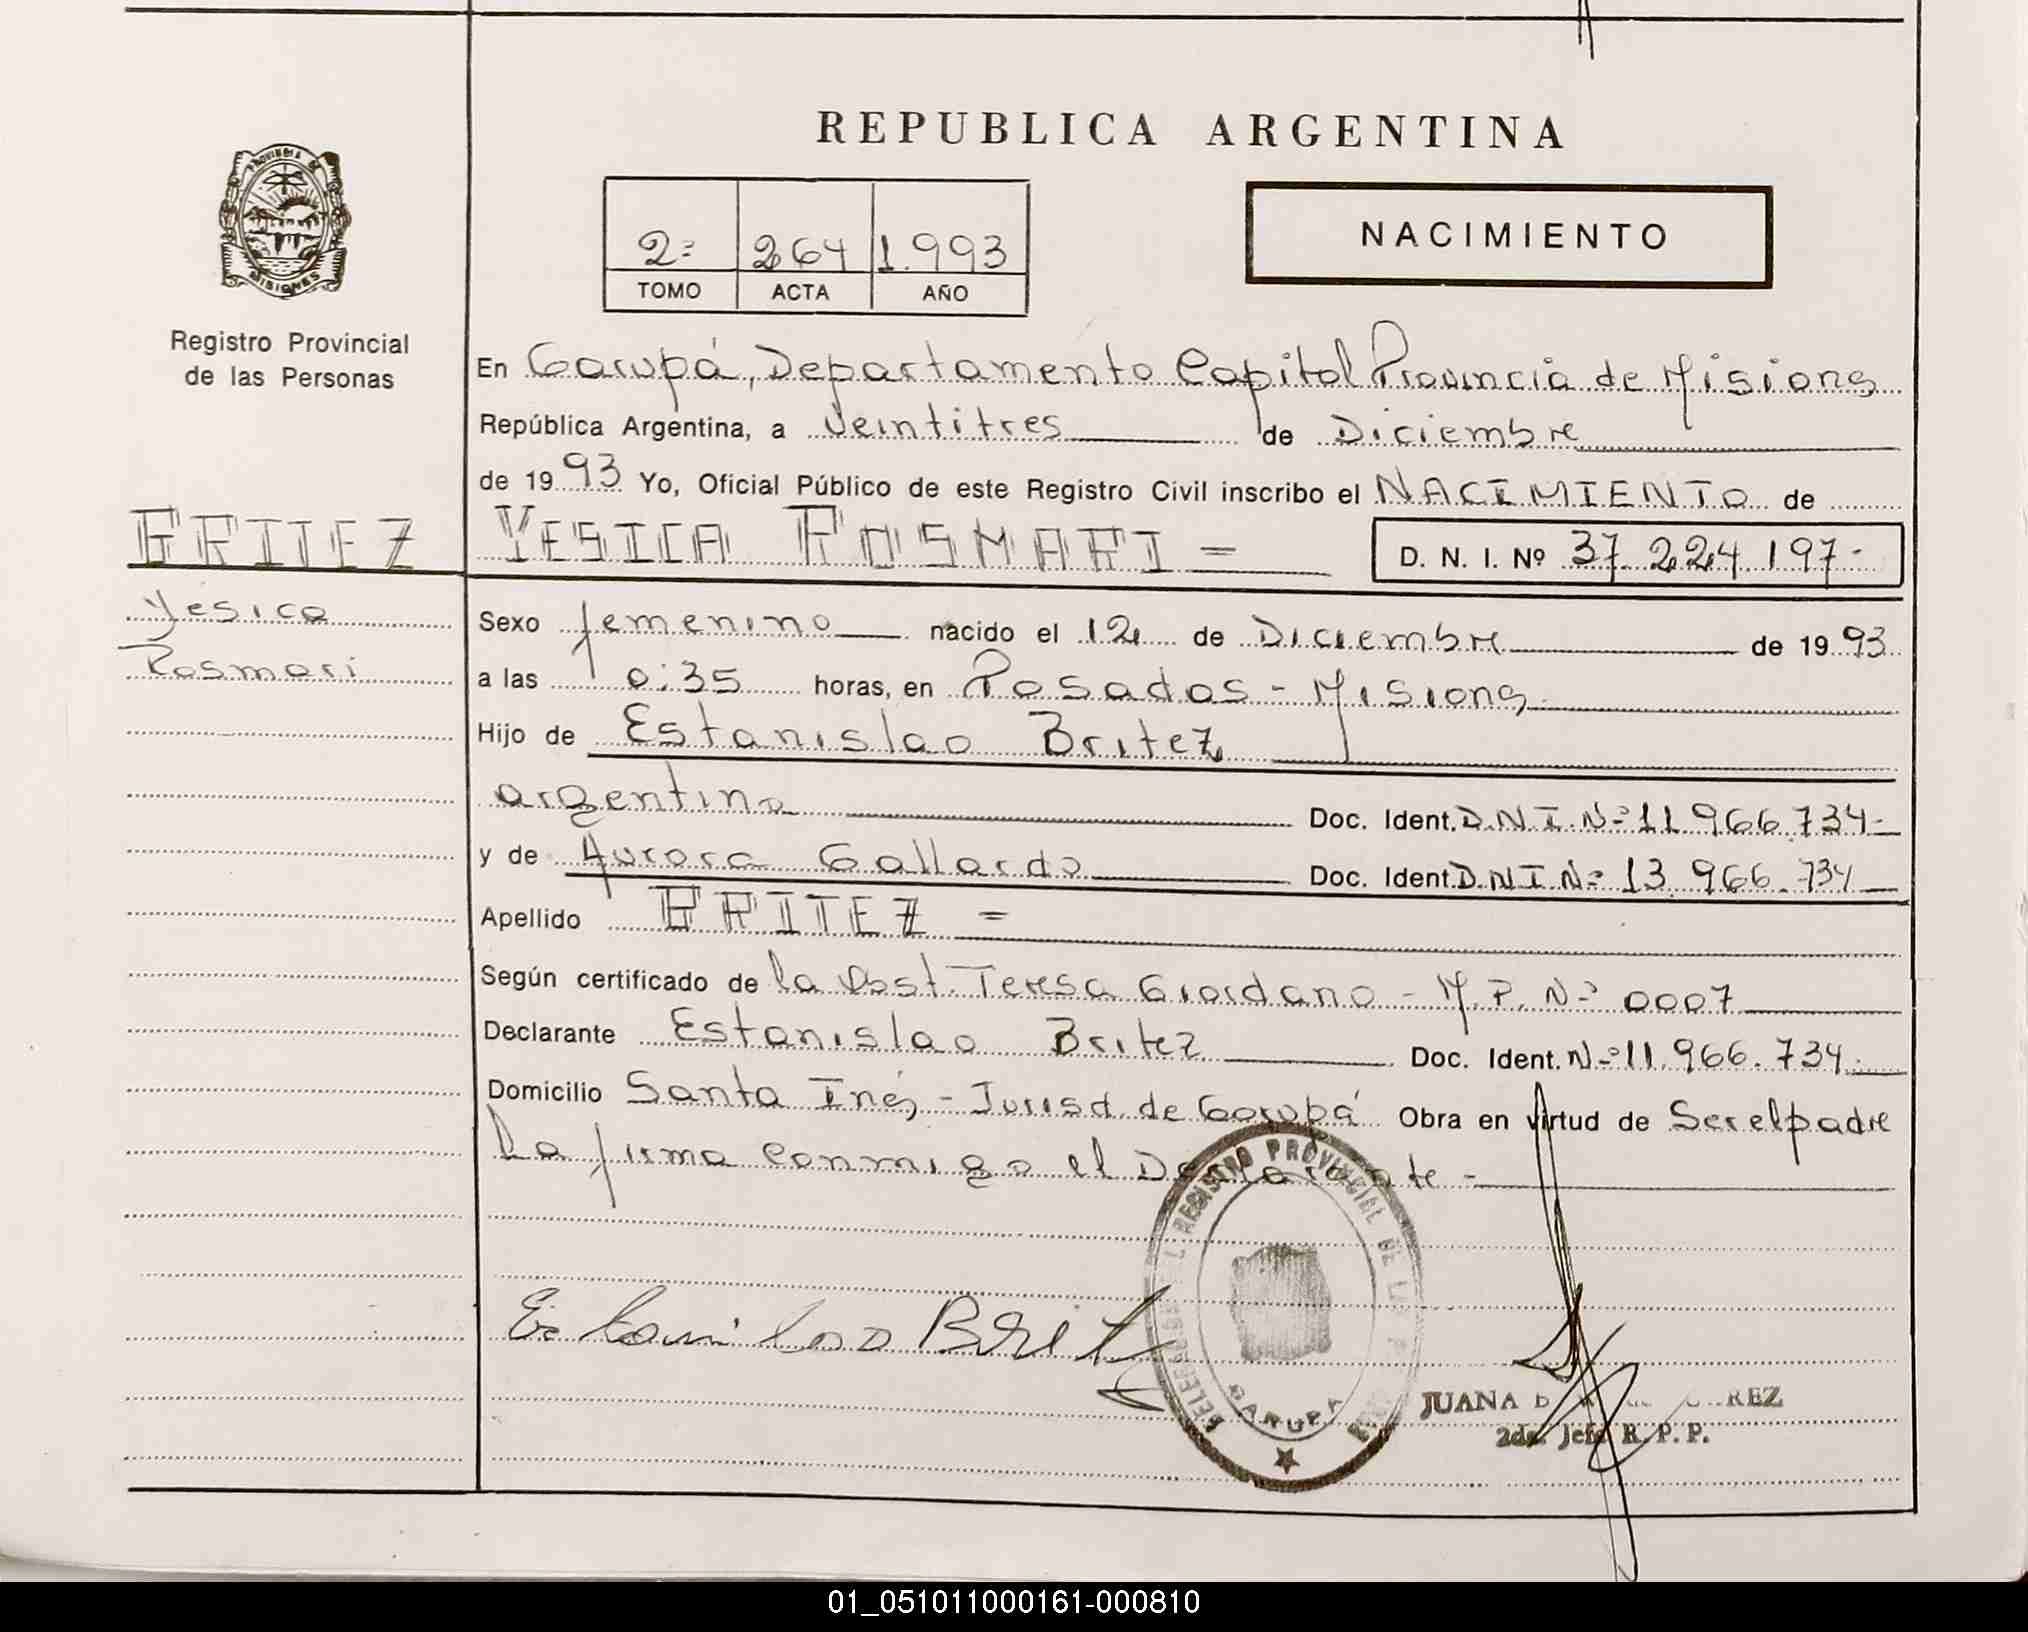 REPUBLICA ARGENTINA
PROVINCIA DE
MISIONES
Registro Provincial
de las Personas
2º 264 1.993
TOMO ACTA AÑO
NACIMIENTO
En Garupá, Departamento Capital Provincia de Misiones
República Argentina, a Veintitres de Diciembre
de 1993 Yo, Oficial Público de este Registro Civil inscribo el NACIMIENTO de
BRITEZ YESICA ROSMARI = D. N. I. Nº 37.224.197-
Yesica
Rosmari
Sexo femenino nacido el 12 de Diciembre de 1993
a las 0:35 horas, en Posadas - Misiones
Hijo de Estanislao Britez
argentino Doc. Ident. D.N.I.Nº 11.966.734-
y de Aurora Gallardo Doc. Ident. D.N.I.Nº 13.966.734
Apellido BRITEZ =
Según certificado de la Obst. Teresa Giordano - M.P. Nº 0007
Declarante Estanislao Britez Doc. Ident. Nº 11.966.734.
Domicilio Santa Inés - Jurisd. de Garupá Obra en virtud de Ser el padre
La firma conmigo el Declarante -
REGISTRO PROVINCIAL DE
GARUPA
Estanislao Britez
JUANA
2da. Jefe R. P. P.
01_051011000161-000810